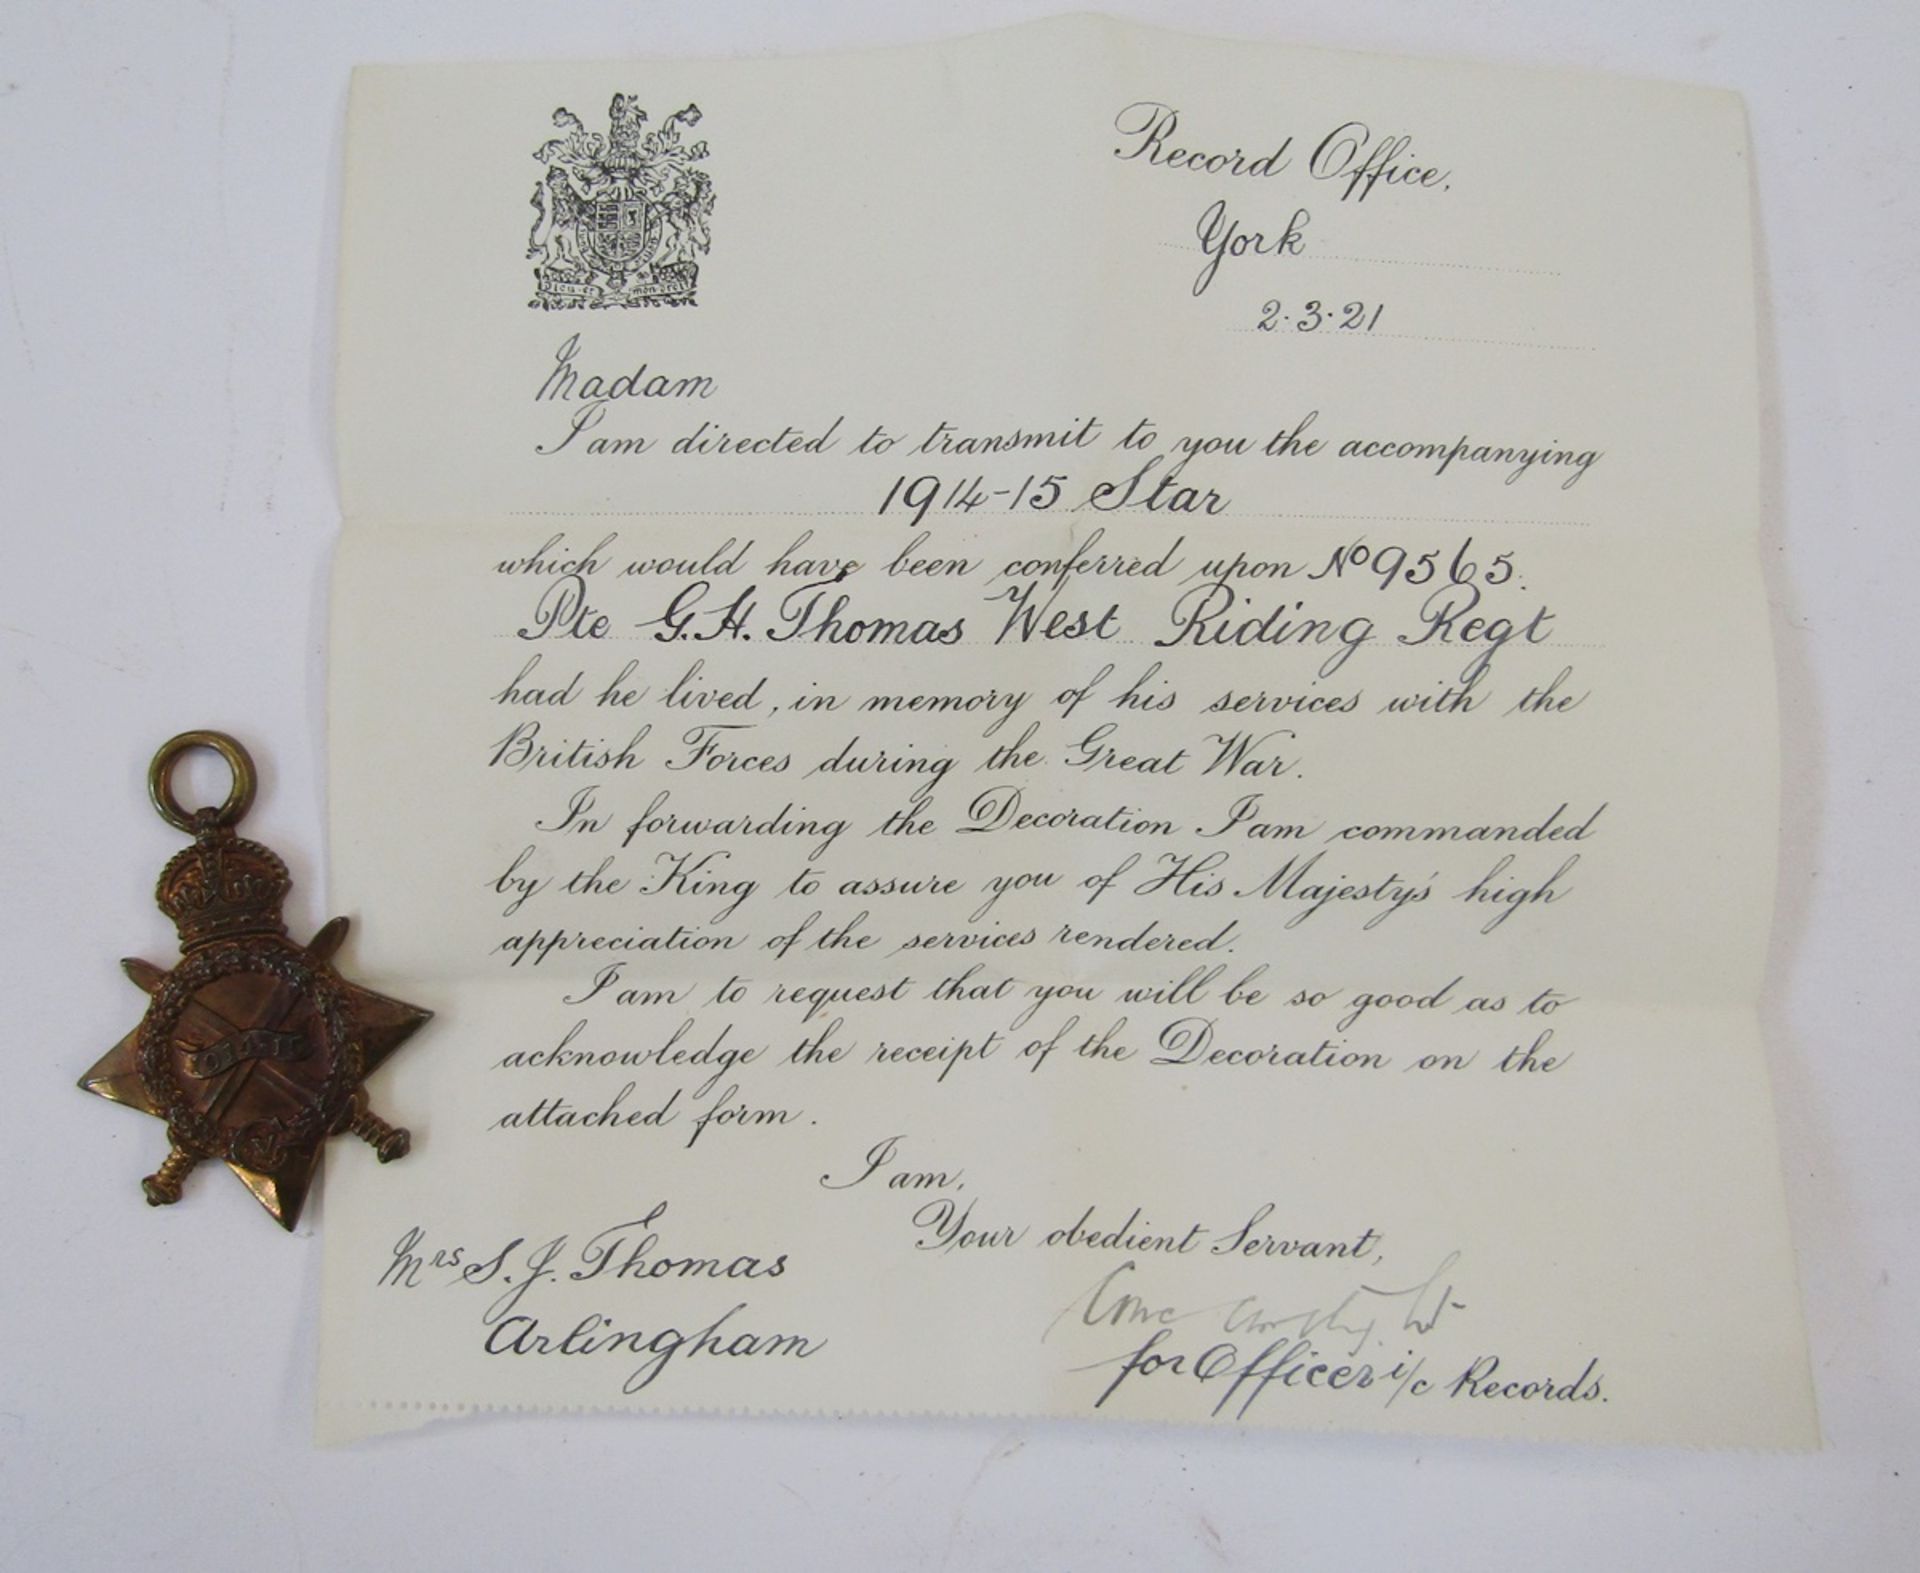 Record Office,
York
2·3·21
Dieu et mon droit
Madam
I am directed to transmit to you the accompanying
1914-15 Star
which would have been conferred upon No 9565.
Pte G.H. Thomas West Riding Regt
had he lived, in memory of his services with the
British Forces during the Great War.
In forwarding the Decoration I am commanded
by the King to assure you of His Majesty's high
appreciation of the services rendered.
I am to request that you will be so good as to
acknowledge the receipt of the Decoration on the
attached form.
I am,
Your obedient Servant,
for Officer i/c Records.
Mrs S. J. Thomas
Arlingham
1914-15